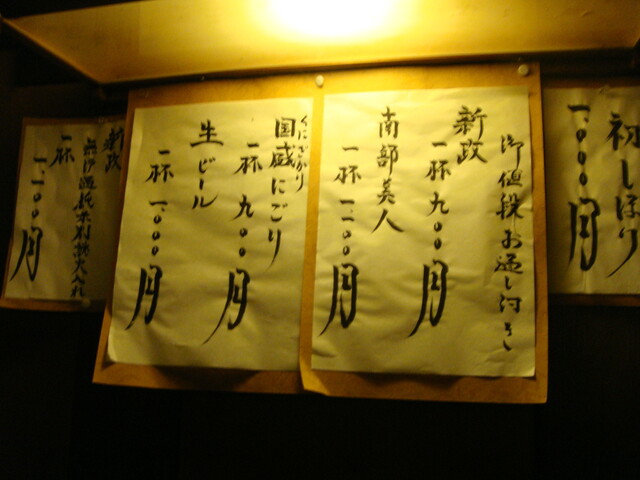 初しぼり
一、〇〇〇円
御値段お通し付き
新政
一杯 九〇〇円
南部美人
一杯 一、一〇〇円
くにざかり
国盛にごり
一杯 九〇〇円
生ビール
一杯 一、〇〇〇円
新政
一杯
一、一〇〇円